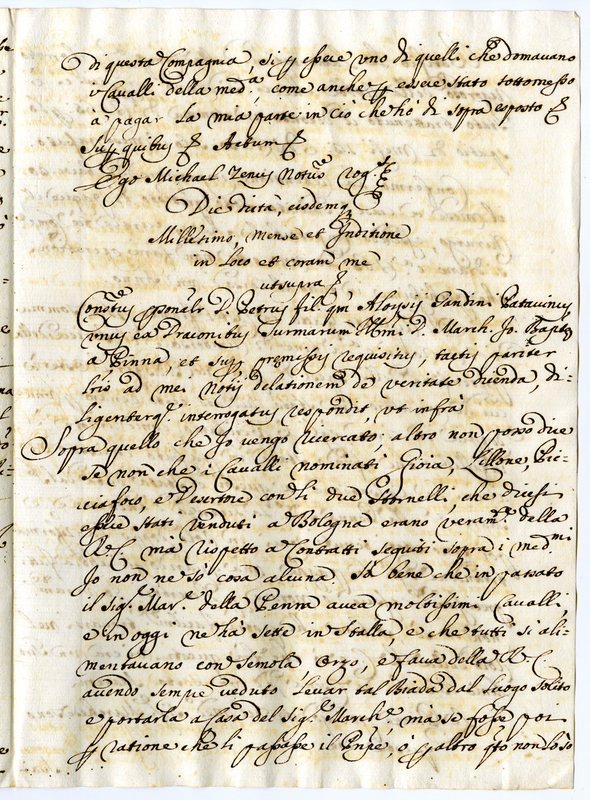 di questa Compagnia, si p essere uno di quelli che domavano
i Cavalli della med.a, come anche p essere stato sottomesso
à pagar la mia parte in ciò che hò di sopra esposto
Sup quibus Actum
Ego Michael Notus rog.s
Die dicta, eisdemq
Millesimo, mense et Inditione
in Loco et coram me
utsupra
Constus psonalr D. Petrus fil. qm Aloysij Gandini Patavinus
unus ex Draconibus Turmarum Illmi D. March. Jo. Bapte
à Pinna, et sup premissis requisitus, tactis pariter
ad mei Notij delationem de veritate dicenda, di-
ligenterq. interrogatus respondit, ut infrà
Sopra quello che Jo vengo ricercato, altro non posso dire
se non che i Cavalli nominati Gioia, Lillone, Bri-
ciafoco, e Desertone con li due Stornelli, che dicesi
essere stati venduti a Bologna erano veram.te della
R. C. mà rispetto a Contratti seguiti sopra i med.mi
Jo non ne sò cosa alcuna. Sò bene che in passato
il Sig.r Mar.e della Penna avea moltissimi Cavalli,
e in oggi ne hà sette in Stalla, e che tutti si ali-
mentavano con Semola, Orzo, e Fava della R. C.
avendo sempre veduto levar tal Biada dal luogo solito
e portarla a Casa del Sig.r March.e, mà se fosse poi
p ratione che li passasse il Pnpe, ò p altro qto non lo sò